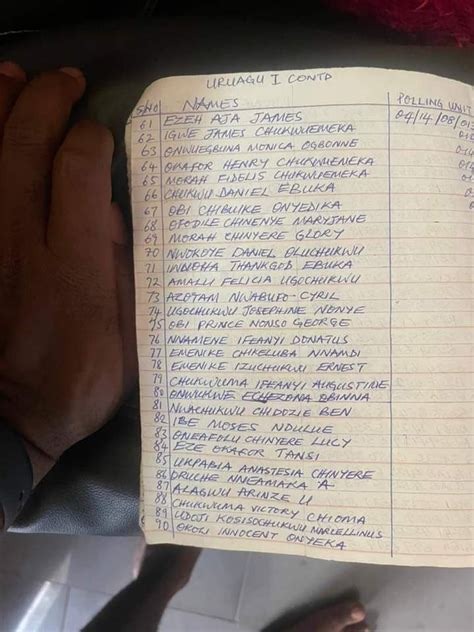 URUAGU I CONTD
S/NO NAMES POLLING UNIT
61 EZEH AJA JAMES 04/14/08/013
62 IGWE JAMES CHUKWUEMEKA
63 ONWUEGBUNA MONICA OGBONNE
64 OKAFOR HENRY CHUKWUEMEKA
65 MORAH FIDELIS CHUKWUEMEKA
66 CHUKWU DANIEL EBUKA
67 OBI CHIBUIKE ONYEDIKA
68 OFODILE CHINENYE MARYJANE
69 MORAH CHINYERE GLORY
70 NWOKOYE DANIEL OLUCHUKWU
71 THANKGOD EBUKA
72 AMALU FELICIA UGOCHUKWU
73 AZOTAM NWABUFO-CYRIL
74 UGOCHUKWU JOSEPHINE NENYE
75 OBI PRINCE NONSO GEORGE
76 NNAMENE IFEANYI DONATUS
77 EMENIKE CHIKELUBA NNAMDI
78 EMENIKE IZUCHUKWU ERNEST
79 CHUKWUMA IFEANYI AUGUSTINE
80 ONWUKWE ECHEZONA OBINNA
81 NWACHUKWU CHIDOZIE BEN
82 IBE MOSES NDULUE
83 ONEAFOLU CHINYERE LUCY
84 EZE OKAFOR TANSI
85 UKPABIA ANASTESIA CHINYERE
86 ORUCHE NNEAMAKA A
87 ALAGWU ARINZE U
88 CHUKWUMA VICTORY CHIOMA
89 UDOJI KOSISOCHUKWU MARCELLINUS
90 OKOLI INNOCENT ONYEKA